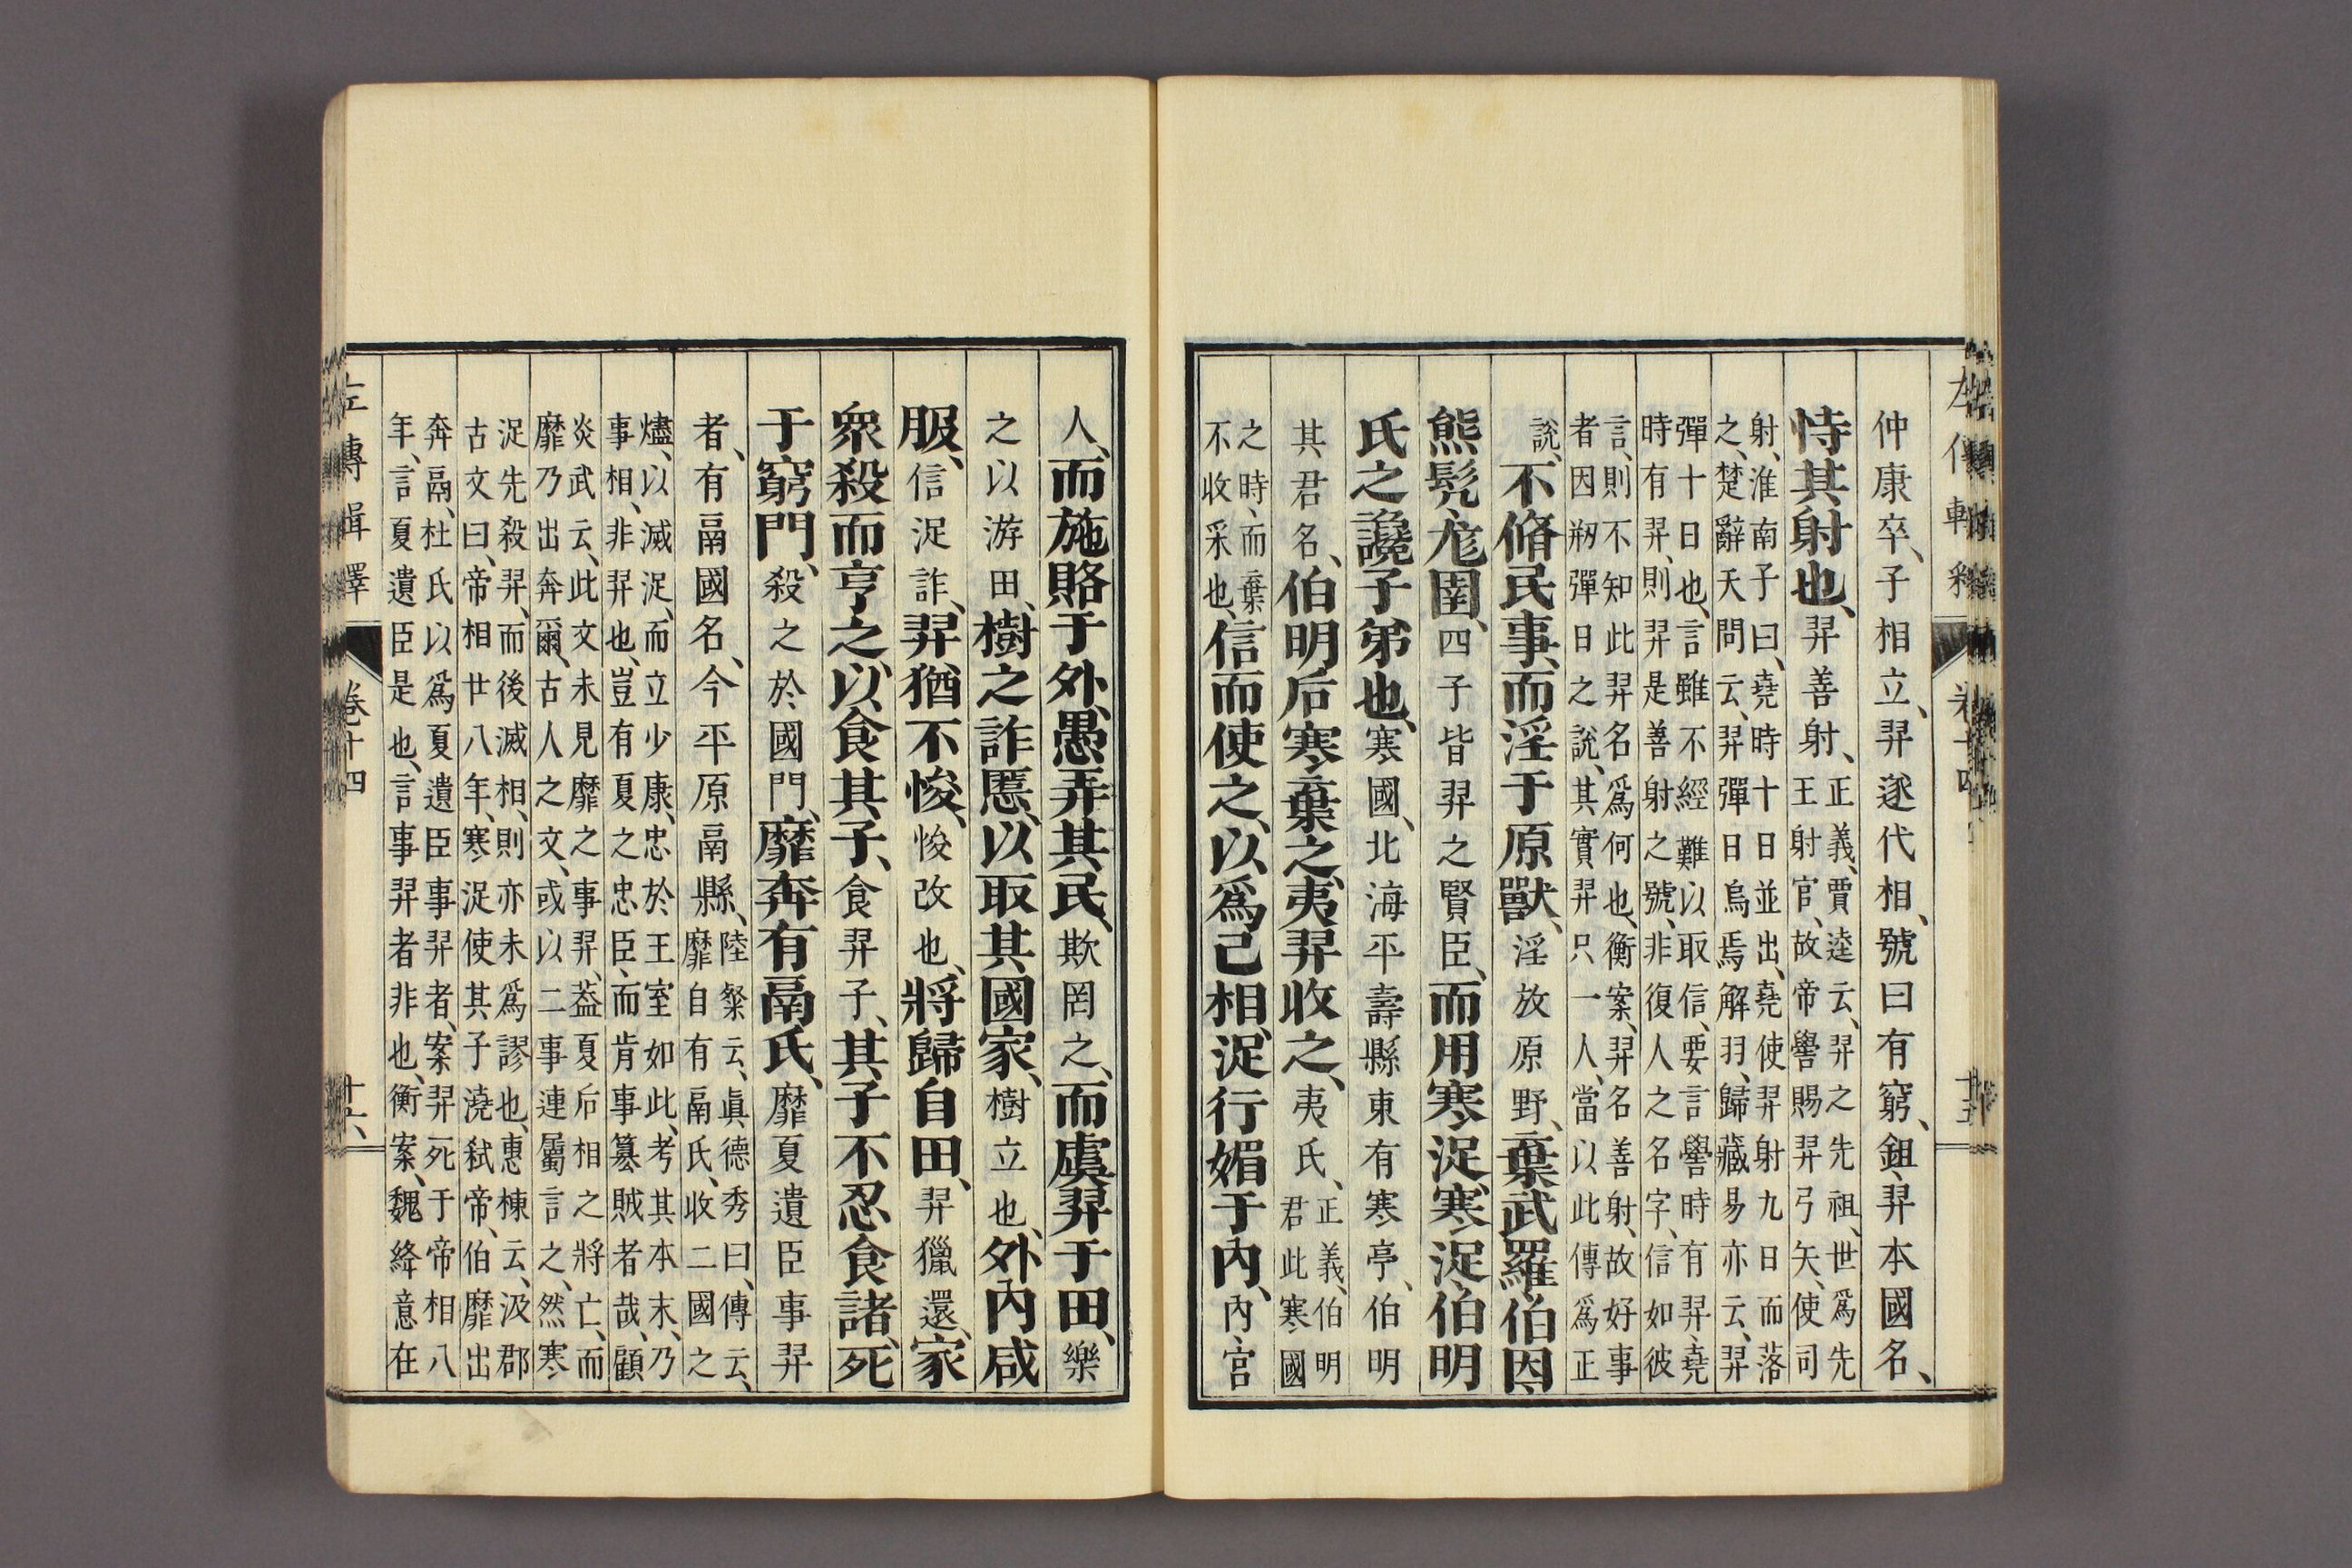 仲康卒、子相立、羿逐代相、號曰有窮、鉏、羿本國名、
恃其射也、羿善射、正義、賈逵云、羿之先祖、世爲先
王射官、故帝嚳賜羿弓矢、使司
射、淮南子曰、堯時十日並出、堯使羿射九日而落
之、楚辭天問云、羿彈日烏焉解羽、歸藏易亦云、羿
彈十日也、言雖不經難以取信、要言嚳時有羿、堯
時有羿、則羿是善射之號、非復人之名字、信如彼
言、則不知此羿名爲何也、衡案、羿名善射、故好事
者因剏彈日之說、其實羿只一人、當以此傳爲正
說、不脩民事、而淫于原獸、淫放原野、棄武羅伯因
熊髠尨圉、四子皆羿之賢臣、而用寒浞、寒浞、伯明
氏之讒子弟也、寒國、北海平壽縣東有寒亭、伯明
其君名、伯明后寒棄之、夷羿收之、夷氏、正義、伯明
君此寒國
之時、而棄
不收采也、信而使之、以爲己相、浞行媚于內、內、宮
人、而施賂于外、愚弄其民、欺罔之、而虞羿于田、樂
之以游田、樹之詐慝、以取其國家、樹立也、外內咸
服、信浞詐、羿猶不悛、悛改也、將歸自田、羿獵還、家
衆殺而亨之、以食其子、食羿子、其子不忍食諸、死
于窮門、殺之於國門、靡奔有鬲氏、靡夏遺臣事羿
者、有鬲國名、今平原鬲縣、陸粲云、眞德秀曰、傳云、
靡自有鬲氏、收二國之
燼、以滅浞、而立少康、忠於王室如此、考其本末、乃
事相、非羿也、豈有夏之忠臣、而肯事簒賊者哉、顧
炎武云、此文未見靡之事羿、蓋夏后相之將亡、而
靡乃出奔爾、古人之文、或以二事連屬言之、然寒
浞先殺羿、而後滅相、則亦未爲謬也、惠棟云、汲郡
古文曰、帝相廿八年、寒浞使其子澆弑帝、伯靡出
奔鬲、杜氏以爲夏遺臣事羿者、案羿死于帝相八
年、言夏遺臣是也、言事羿者非也、衡案、魏絳意在
左傳輯釋 卷十四 十六